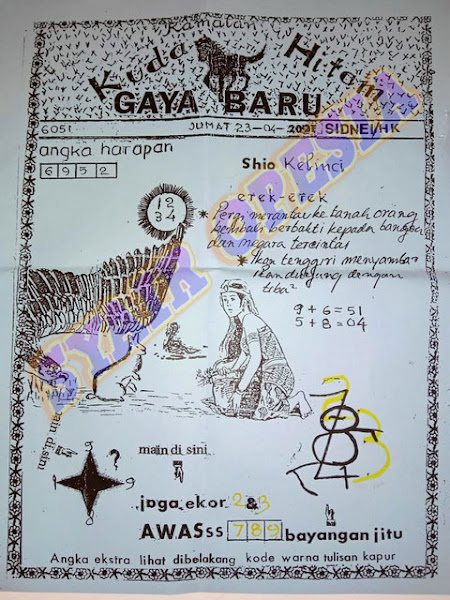 Ramalan
Kuda Hitam
GAYA BARU
6051 JUMAT 23-04-2021 SIDNEI/HK
angka harapan
6952
Shio Kelinci
erek-erek
12
34
*Pergi merantau ke tanah orang
kembali berbakti kepada bangsa
dan negara tercinta
*Ikan tenggiri menyambar
ikan
dengan
tiba²
9+6=51
5+8=04
main di sini
main di sini
?
jaga ekor 2&3
AWASss 789 bayangan jitu
Angka ekstra lihat dibelakang kode warna tulisan kapur